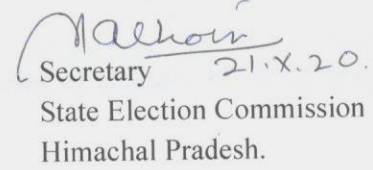 Secretary 21.X.20.
State Election Commission
Himachal Pradesh.